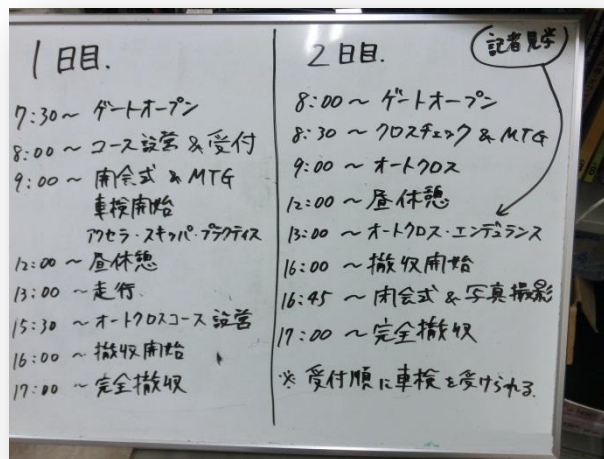 1日目.
7:30～ ゲートオープン
8:00～ コース設営&受付
9:00～ 開会式&MTG
車検開始
アクセラ・スキッパ・プラクティス
12:00～昼休憩
13:00～走行
15:30～オートクロスコース設営
16:00～撤収開始
17:00～完全撤収
2日目.
記者見学
8:00～ゲートオープン
8:30～クロスチェック&MTG
9:00～オートクロス
12:00～昼休憩
13:00～オートクロス・エンデュランス
16:00～撤収開始
16:45～閉会式&写真撮影
17:00～完全撤収
※受付順に車検を受けられる.